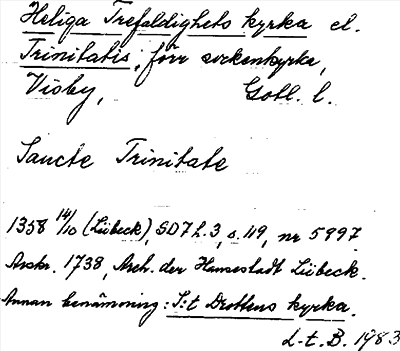 Heliga Trefaldighets kyrka el.
Trinitatis, förr sockenkyrka,
Visby, Gotl. l.
Sancte Trinitate
1358 14/10 (Lübeck), SD 7 h. 3, s. 119, nr 5997.
Avskr. 1738, Arch. der Hansestadt Lübeck.
Annan benämning: S:t Drottens kyrka.
L-t. B. 1983